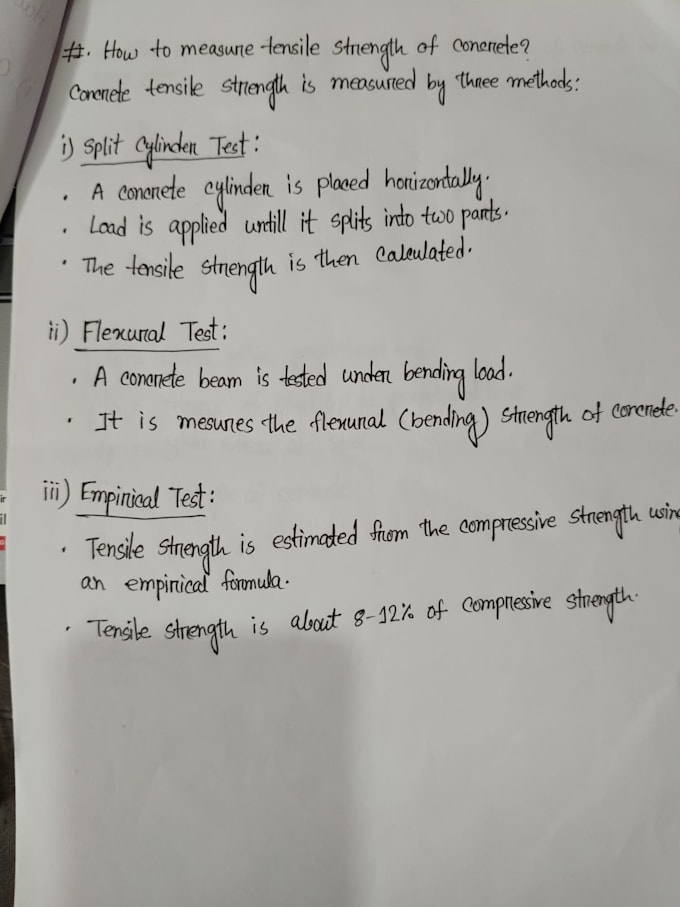 #. How to measure tensile strength of concrete?
Concrete tensile strength is measured by three methods:
i) Split Cylinder Test:
• A concrete cylinder is placed horizontally.
• Load is applied untill it splits into two parts.
• The tensile strength is then calculated.
ii) Flexural Test:
• A concrete beam is tested under bending load.
• It is mesures the flexural (bending) strength of concrete.
iii) Empirical Test:
• Tensile strength is estimated from the compressive strength using
an empirical formula.
• Tensile strength is about 8-12% of compressive strength.